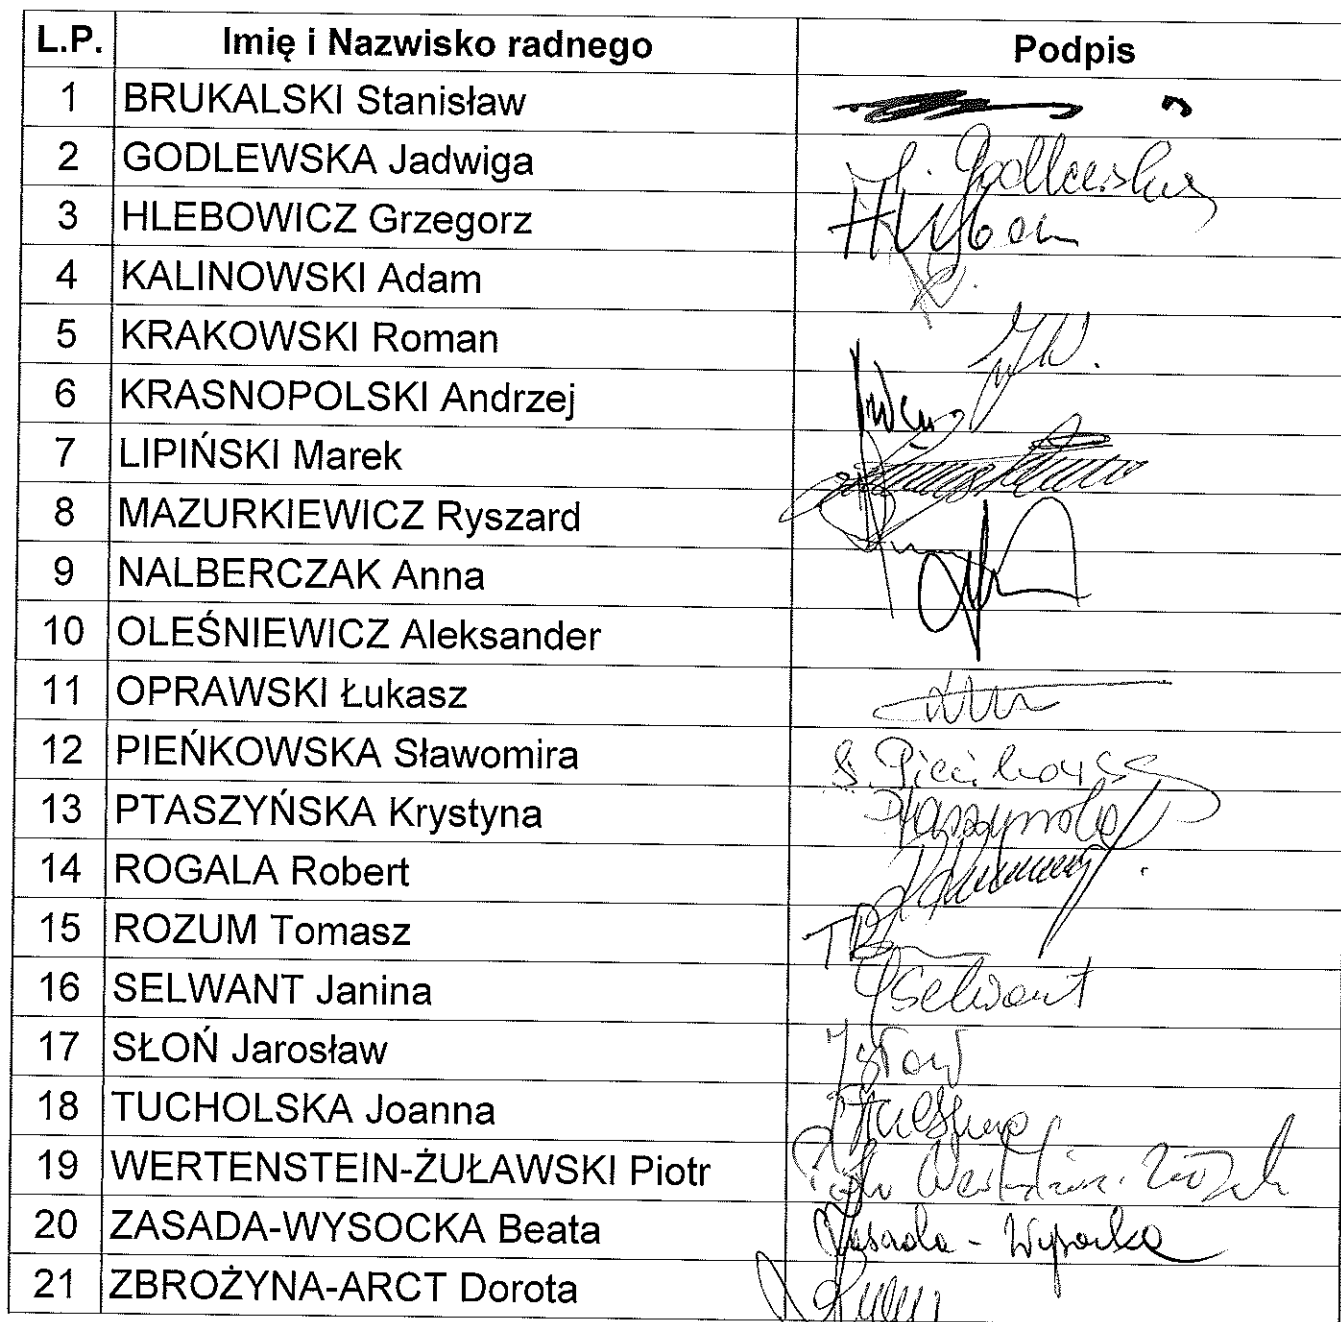 L.P. Imię i Nazwisko radnego Podpis
1 BRUKALSKI Stanisław
2 GODLEWSKA Jadwiga J. Godlewska
3 HLEBOWICZ Grzegorz
4 KALINOWSKI Adam
5 KRAKOWSKI Roman
6 KRASNOPOLSKI Andrzej
7 LIPIŃSKI Marek
8 MAZURKIEWICZ Ryszard
9 NALBERCZAK Anna
10 OLEŚNIEWICZ Aleksander
11 OPRAWSKI Łukasz
12 PIEŃKOWSKA Sławomira S. Pieńkowska
13 PTASZYŃSKA Krystyna Ptaszyńska
14 ROGALA Robert
15 ROZUM Tomasz
16 SELWANT Janina JSelwant
17 SŁOŃ Jarosław JSłoń
18 TUCHOLSKA Joanna
19 WERTENSTEIN-ŻUŁAWSKI Piotr Piotr
20 ZASADA-WYSOCKA Beata Zasada - Wysocka
21 ZBROŻYNA-ARCT Dorota